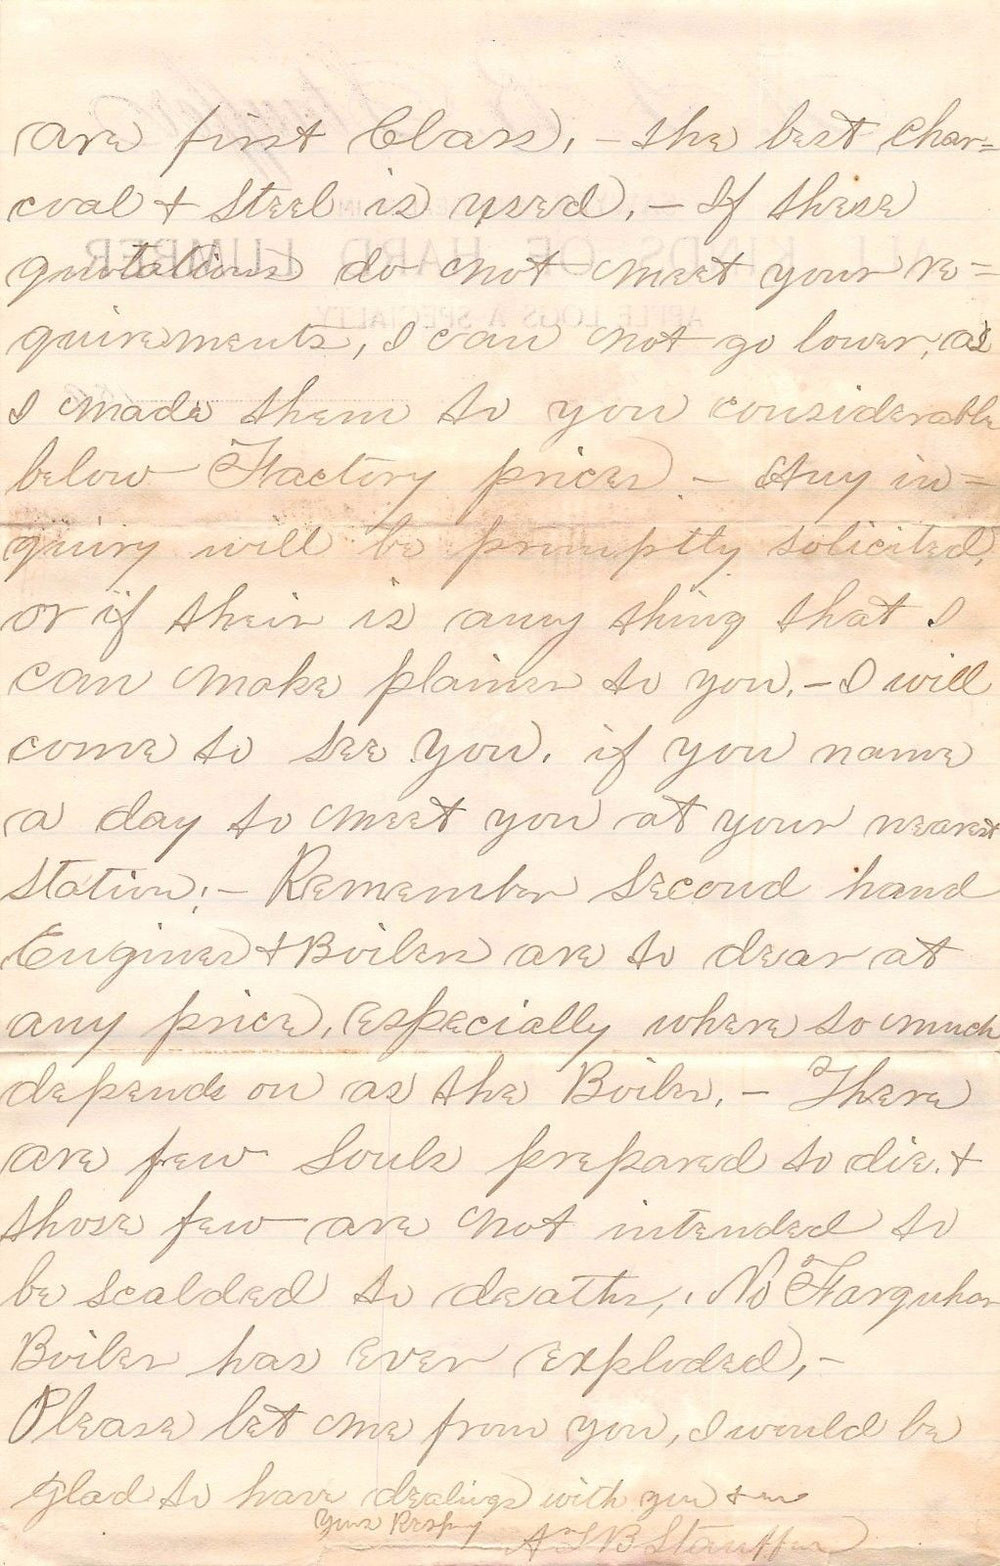 are first Class, – the best char=
coal & Steel is used, – If these
quotations do not meet your re=
quirements, I can not go lower, as
I made them to you considerable
below Factory prices – Any in=
quiry will be promptly solicited,
or if their is any thing that I
can make plainer to you, – I will
come to see you. if you name
a day to meet you at your nearest
station; – Remember Second hand
Engines & Boilers are to dear at
any price, especially where so much
depends on as the Boiler. – There
are few Souls prepared to die. &
those few are not intended to
be scalded to death, . No Farquhar
Boiler has ever exploded, –
Please let me from you, I would be
glad to have dealings with you &
Yours Respy
B Stauffer
ALL KINDS OF HARD LUMBER
APPLE LOGS A SPECIALTY